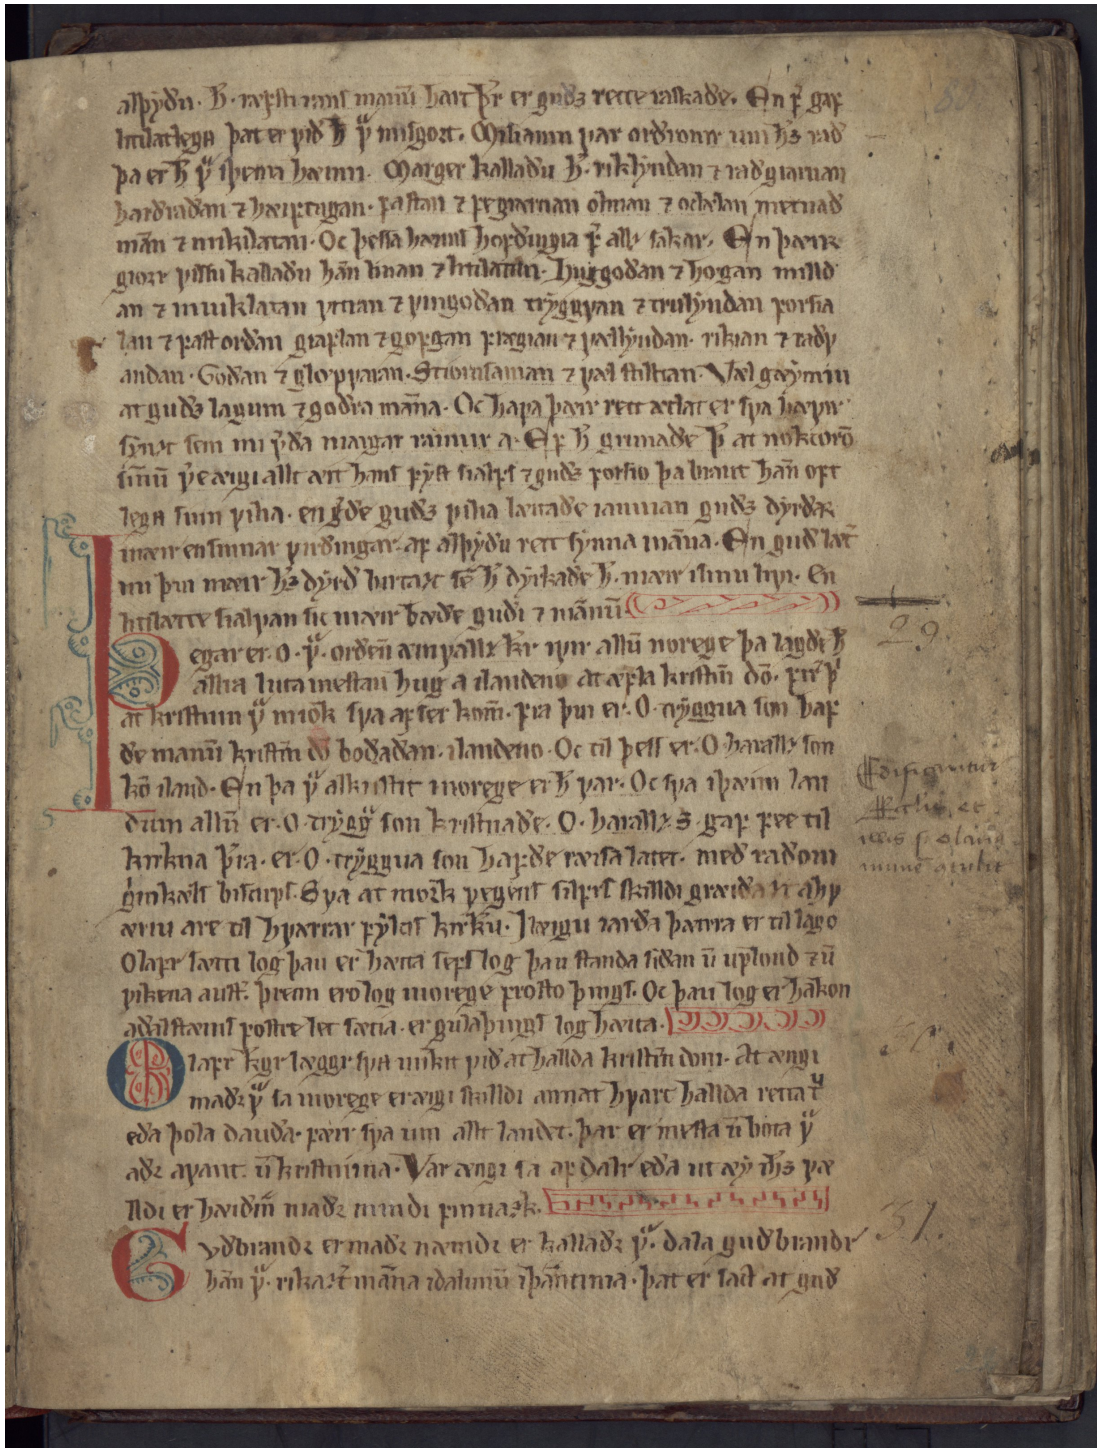 alþyðu. H̅. ræfsti rans mannū hart þ̅r er guðꝫ rette raskaðe. En f̅ gaf
litillatlega þat er við h̅ ꝩ̅ misgort. Misiamn var orðromr um h̅s rað
þa er h̅ ꝩ̅ i þema hæimi. Marger kallaðu h̅. riklyndan ⁊ raðgiarnan
harðraðan ⁊ hæiftugan. fastan ⁊ fegiarnan olman ⁊ oðælan metnað
man̅ ⁊ mikilatan. Oc þessa hæims hofðingia f̅ allꝫ sakar. En þæir
giorr vissu kallaðu han̅ linan ⁊ litillatan. Huggoðan ⁊ hogan milld
an ⁊ miuklatan vitran ⁊ vingoðan tryggvan ⁊ trulyndan forsia
lan ⁊ fastorðan giaflan ⁊ gofgan frægian ⁊ vællyndan. rikian ⁊ raðv
andan. Goðan ⁊ glopvaran. Stiornsaman ⁊ væl stilltan. Væl gæyminn
at guðꝫ lagum ⁊ goðra man̅a. Oc hafa þæir rett ætlat er sva hæfir
synzt sem nu v̅ða margar raunir a. Ef h̅ grunaðe þ̅ at nokcorō
sin̅ū v̅e æigi allt æitt hans fyst sialfs ⁊ guðꝫ forsio þa braut han̅ oft
lega sinn vilia. en g̅ðe guðꝫ vilia lættaðe iamnan guðꝫ dyrðar
mæir en sinnar virðingar. af alþyðu rett synna man̅a. En guð læt̅
nu þui mæir h̅s dyrð birtazt sē h̅ dyrkaðe h̅. mæir i sinu livi. En
litillætte sialvan sic mæir bæðe guði ⁊ man̅ū
Þegar er. O. ꝩ̅. orðen̅ æinvallꝫ kr̅ ivir allū norege þa lagðe h̅
allra luta mestan hug a ilandeno at æfla kristin̅ dō. firr̅ þ̅
at kristnin ꝩ̅ miok sva after kom̅. fra þui er. O. tryggua son haf
ðe manū kristin̅ dō boðaðan. ilandeno. Oc til þess er. O. harallꝫ son
kō iland. En þa ꝩ̅ alkristit inorege er h̅ var. Oc sva iþæim lan
dum allū er. O. trygg̅ son kristnaðe. O. harallꝫ s. gaf fee til
kirkna þ̅ra. er. O. tryggua son hafðe ræisa latet. með raðom
grimkæls biscups. Sva at mork vegens silfrs skilldi græiðazt ahv
æriu are til hværrar fylkis kirkiu. I læigu iarða þæirra er til lago
Olafr sætti log þau er hæita sefs log þau standa siðan ū uplond ⁊ ū
vikena aust̅. þrenn ero log inorege frosto þings. Oc þau log er hakon
aðalstæins fostre let sætia. er gulaþings log hæita.
Olafr kgr læggr sva mikit við at hallda kristin̅dom. At æingi
maðꝛ ꝩ̅ sa inorege er æigi skilldi annat hvart hallda retta t̅
eða þola dauða. færr sva um allt landet. þar er mesta ū bota ꝩ̅
aðꝛ avant. ū kristnina. Var æingi sa af dalr eða ut æy ih̅s væ
lldi er hæiðin̅ maðꝛ mundi finnazk.
Guðbrandꝛ er maðꝛ næmdꝛ er kallaðꝛ ꝩ̅. dala guðbrandr
han̅ ꝩ̅. rikazt̅ man̅a idalunū iþan̅tima. þat er sact at guð
29
31.